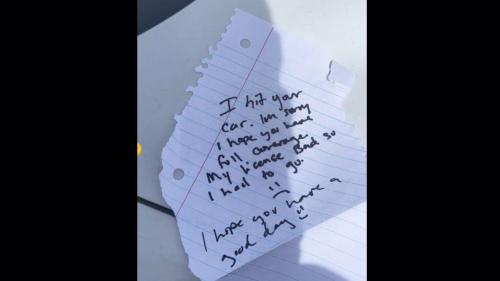 I hit your
car. Im sorry
I hope you have
full coverage.
My license Bad so
I had to go.
I hope you have a
good day